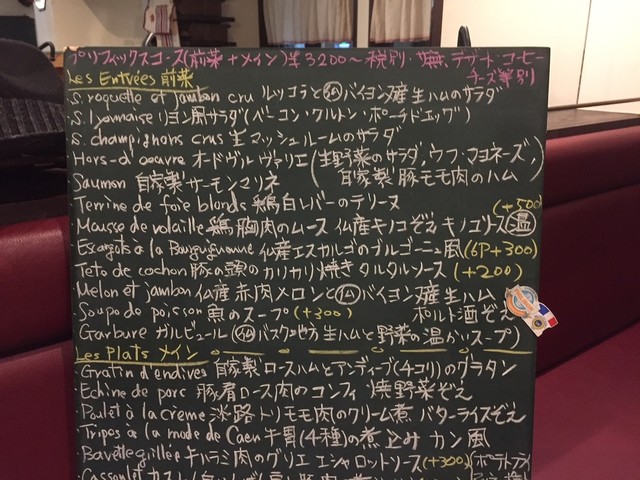 プリフィックスコース(前菜+メイン)¥3200〜税別・デザート・コーヒー
チーズ等別
Les Entrées 前菜
・S. roquette et jambon cru ルッコラと仏バイヨンヌ産生ハムのサラダ
・S. lyonnaise リヨン風サラダ(ベーコン・クルトン・ポーチドエッグ)
・S. champignons crus 生マッシュルームのサラダ
・Hors-d'oeuvre オードヴルヴァリエ(生野菜のサラダ, ウフ・マヨネーズ,
自家製豚モモ肉のハム)
・Saumon 自家製サーモンマリネ
・Terrine de foie blonds 鶏白レバーのテリーヌ
・Mousse de volaille 鶏胸肉のムース 仏産キノコぞえ キノコソース 温 (+500)
・Escargots à la Bourguignonne 仏産エスカルゴのブルゴーニュ風 (6P+300)
・Tete de cochon 豚の頭のカリカリ焼き タルタルソース (+200)
・Melon et jambon 仏産赤肉メロンと仏バイヨンヌ産生ハム
ポルト酒ぞえ
・Soupe de poisson 魚のスープ (+300)
・Garbure ガルビュール (仏バスク地方 生ハムと野菜の温かいスープ)
Les Plats メイン
・Gratin d'endives 自家製ロースハムとアンディーブ(チコリ)のグラタン
・Echine de porc 豚肩ロース肉のコンフィ 焼野菜ぞえ
・Poulet à la crème 淡路トリモモ肉のクリーム煮 バターライスぞえ
・Tripes à la mode de Caen 牛胃(4種)の煮込み カン風
・Bavette grillée 牛ハラミ肉のグリエ エシャロットソース (+300) (ポテトフライ
・Cassoulet